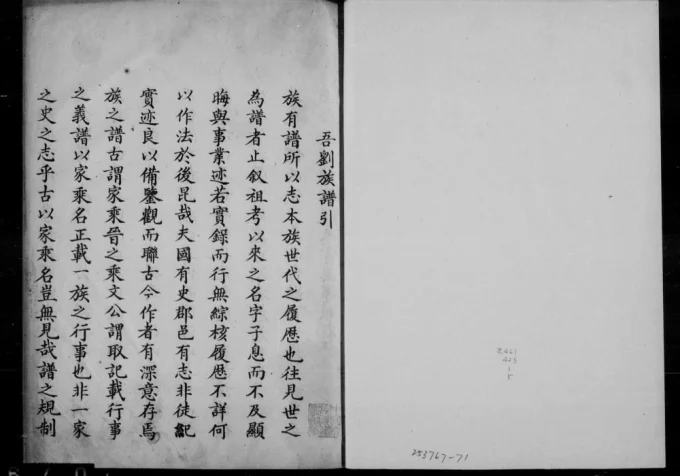 吾劉族譜引
族有譜所以志本族世代之履歷也往見世之
為譜者止叙祖考以來之名字子息而不及顯
晦與事業迹若實錄而行無綜核履歷不詳何
以作法於後昆哉夫國有史郡邑有志非徒紀
實迹良以備鑒觀而聯古今作者有深意存焉
族之譜古謂家乘晉之乘文公謂取記載行事
之義譜以家乘名正載一族之行事也非一家
之史之志乎古以家乘名豈無見哉譜之規制
253767-71